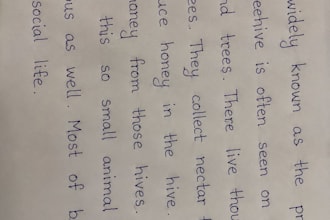 widely known as the pr
eehive is often seen on
nd trees. There live thou
ees. They collect nectar
uce honey in the hive.
oney from those hives.
this so small animal
ous as well. Most of b
social life.